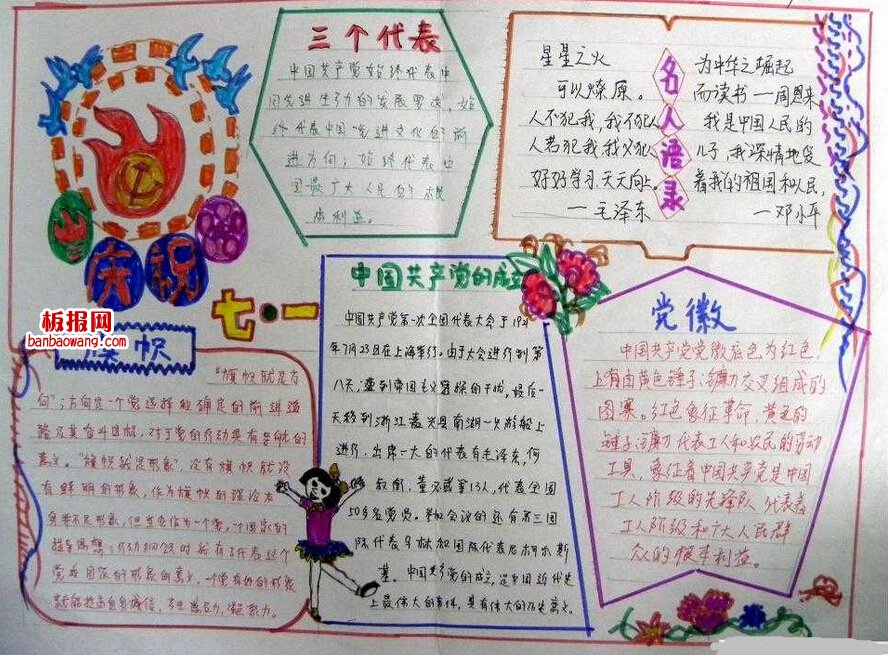 三个代表
中国共产党始终代表中
国先进生产力的发展要求,始
终代表中国先进文化的前
进方向;始终代表中
国最广大人民的根
本利益。
名人语录
星星之火
可以燎原。
人不犯我,我不犯人
人若犯我,我必犯人
好好学习,天天向上。
—毛泽东
为中华之崛起
而读书 —周恩来
我是中国人民的
儿子,我深情地爱
着我的祖国和人民,
—邓小平
庆祝
七·一
板报网
banbaowang.com
旗帜
"旗帜就是方
向";方向是一个党选择和确定的前进道
路及其奋斗目标,对于党的行动具有导航的
意义。"旗帜就是形象",没有旗帜就没
有鲜明的形象,作为旗帜的理论本
身并不是形象,但当它作为一个党,一个国家的
指导思想
党或国家的形象的意义,一个党有好的形象
中国共产党的成立
中国共产党第一次全国代表大会于1921
年7月23日在上海举行。由于大会进行到第
八天,遭到帝国主义
天移到浙江嘉兴县南湖一只游船上
进行,出席一大的代表有毛泽东,何
叔衡,董必武等13人,代表全国
50多名党员。参加会议的还有第三国
际代表马林和国际代表尼柯尔斯
基。中国共产党的成立,是中国近代史
上最伟大的事件,具有伟大的历史意义。
党徽
中国共产党党徽底色为红色,
上有由黄色锤子、镰刀交叉组成的
图案。红色象征革命,黄色的
锤子、镰刀代表工人和农民的劳动
工具,象征着中国共产党是中国
工人阶级的先锋队,代表着
工人阶级和广大人民群
众的根本利益。